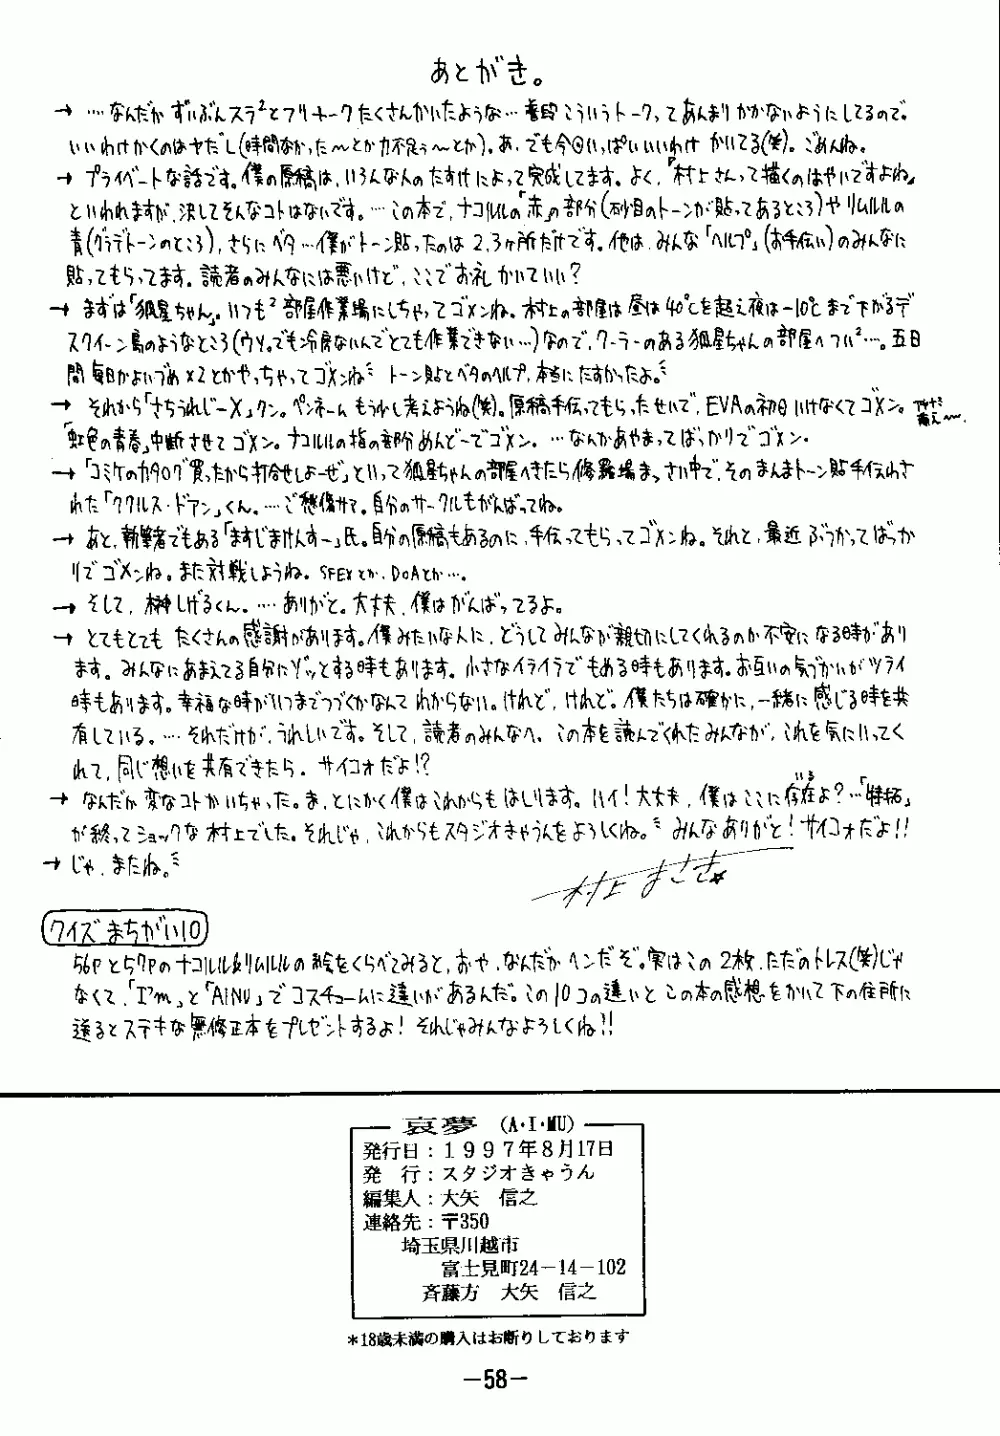 あとがき。
→ …なんだか ずいぶんスラ²とフリートークたくさんかいたような… 普段こういうトークってあんまりかかないようにしてるので。
いいわけかくのはヤだし(時間なかった〜とか力不足ぅ〜とか)。あ、でも今回いっぱいいいわけ かいてる(笑)。ごめんね。
→ プライベートな話です。僕の原稿は、いろんな人のたすけによって完成してます。よく、「村上さんって描くのはやいですよね」
といわれますが、決してそんなコトはないです。…この本で、ナコルルの「赤」の部分(砂目のトーンが貼ってあるところ)やリムルルの
青(グラデトーンのところ)、さらにベタ…僕がトーン貼ったのは2,3ヶ所だけです。他は、みんな「ヘルプ」(お手伝い)のみんなに
貼ってもらってます。読者のみんなには悪いけど、ここでお礼かいていい?
→ まずは「狐星ちゃん」。いつも² 部屋作業場にしちゃってゴメンね。村上の部屋は昼は40℃を超え夜は-10℃まで下がるデ
スクイーン島のようなところ(ウソ。でも冷房ないんでとても作業できない…)なので、クーラーのある狐星ちゃんの部屋へつい²…。五日
間毎日かよいづめ×2とかやっちゃってゴメンね トーン貼とベタのヘルプ、本当にたすかったよ。
→ それから「さちうれじーX」クン。ペンネームもう少し考えようね(笑)。原稿手伝ってもらったせいで、EVAの初日いけなくてゴメン。
「虹色の青春」中断させてゴメン。ナコルルの指の部分めんどーでゴメン。…なんかあやまってばっかりでゴメン。
→「コミケのカタログ買ったから打合せしよーぜ」といって狐星ちゃんの部屋へきたら修羅場まっさい中で、そのまんまトーン貼手伝わさ
れた「ククルス・ドアン」くん。…ご愁傷サマ。自分のサークルもがんばってね。
→ あと、執筆者でもある「ますじまけんすー」氏。自分の原稿もあるのに、手伝ってもらってゴメンね。それと、最近 ぶつかってばっか
りでゴメンね。また対戦しようね。SFEXとか、DOAとか…。
→ そして、榊しげるくん。…ありがと。大丈夫、僕はがんばってるよ。
→ とてもとても たくさんの感謝があります。僕みたいな人に、どうしてみんなが親切にしてくれるのか不安になる時があり
ます。みんなにあまえてる自分にゾッとする時もあります。小さなイライラでもめる時もあります。お互いの気づかいがツライ
時もあります。幸福な時がいつまでつづくかなんてわからない。けれど、けれど。僕たちは確かに、一緒に感じる時を共
有している。…それだけが、うれしいです。そして、読者のみんなへ。この本を読んでくれたみんなが、これを気にいってく
れて、同じ想いを共有できたら、サイコォだよ!?
→ なんだか変なコトかいちゃった。ま、とにかく僕はこれからもはしります。ハイ!大丈夫、僕はここに存在よ?…「特拓」
いる
が終ってショックな村上でした。それじゃ、これからもスタジオきゃうんをよろしくね。 みんなありがと!サイコォだよ!!
→ じゃ、またね。
村上 まさき
クイズまちがい10
56Pと57Pのナコルル&リムルルの絵をくらべてみると、おや、なんだかヘンだぞ。実はこの2枚、ただのトレス(笑)じゃ
なくて、「I'm」と「AINU」でコスチュームに違いがあるんだ。この10コの違いと この本の感想をかいて下の住所に
送るとステキな無修正本をプレゼントするよ! それじゃみんなよろしくね!!
哀夢 (A・I・MU)
発行日:1997年8月17日
発 行:スタジオきゃうん
編集人:大矢 信之
連絡先:〒350
埼玉県川越市
富士見町24−14−102
斉藤方 大矢 信之
*18歳未満の購入はお断りしております
−58−